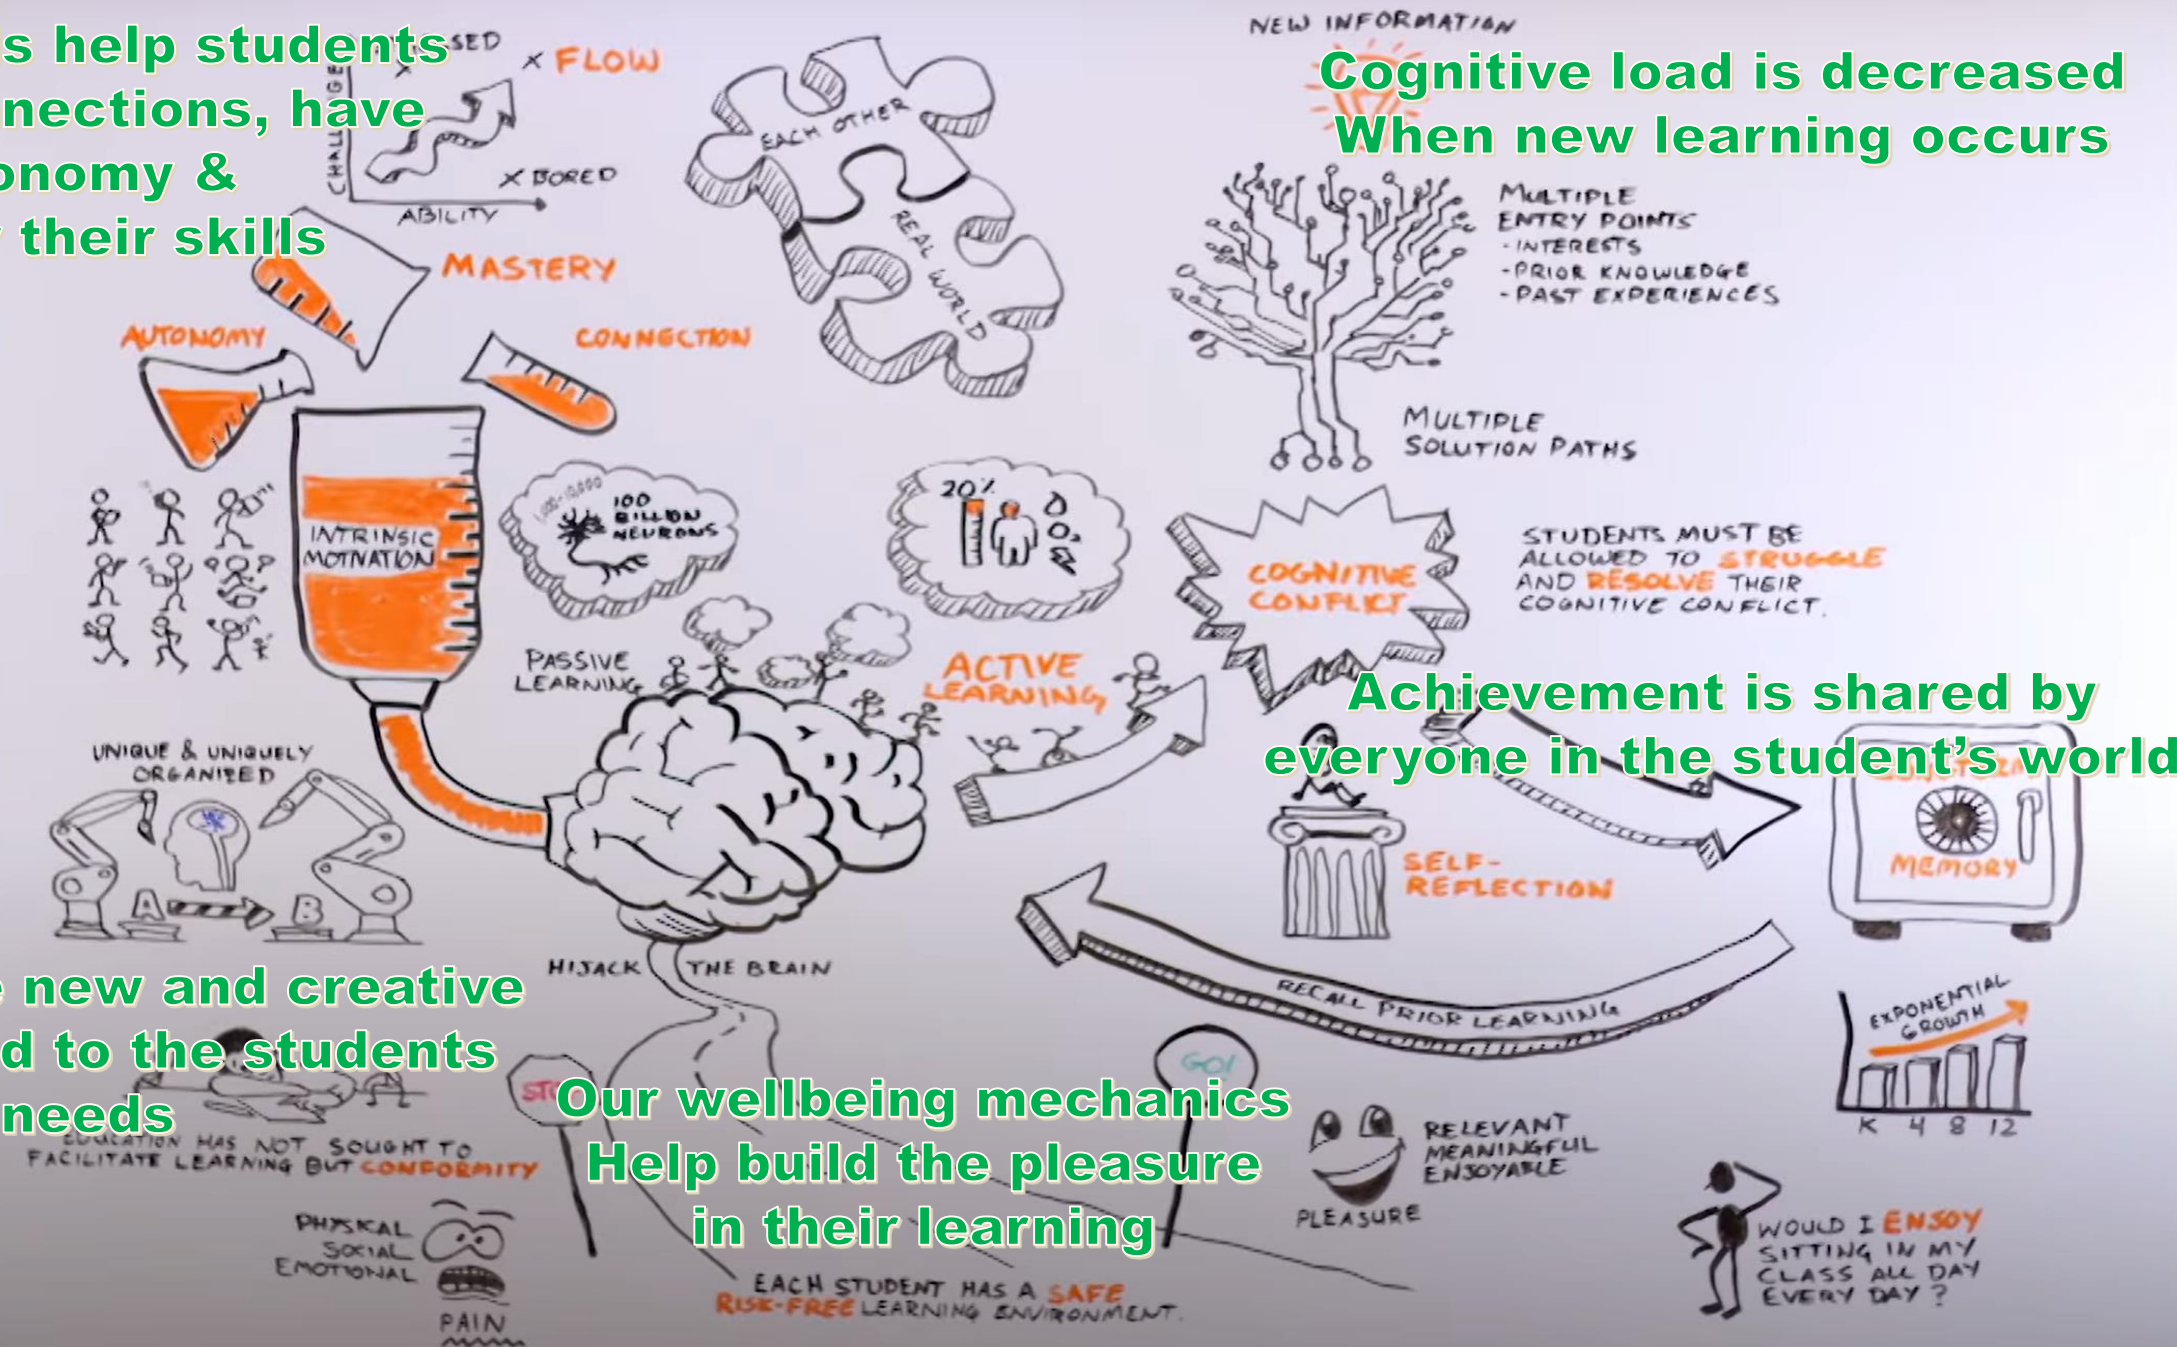 s help students
nections, have
onomy &
their skills
FLOW
CHALLENGE
BORED
ABILITY
MASTERY
AUTONOMY
CONNECTION
EACH OTHER
REAL WORLD
NEW INFORMATION
Cognitive load is decreased
When new learning occurs
MULTIPLE
ENTRY POINTS
- INTERESTS
- PRIOR KNOWLEDGE
- PAST EXPERIENCES
MULTIPLE
SOLUTION PATHS
INTRINSIC
MOTIVATION
1,000-10,000
100
BILLION
NEURONS
20%
O₂
COGNITIVE
CONFLICT
STUDENTS MUST BE
ALLOWED TO STRUGGLE
AND RESOLVE THEIR
COGNITIVE CONFLICT.
PASSIVE
LEARNING
ACTIVE
LEARNING
Achievement is shared by
everyone in the student’s world
UNIQUE & UNIQUELY
ORGANIZED
A
B
SELF-
REFLECTION
MEMORY
HIJACK THE BRAIN
RECALL PRIOR LEARNING
EXPONENTIAL
GROWTH
K 4 8 12
e new and creative
d to the students
needs
EDUCATION HAS NOT SOUGHT TO
FACILITATE LEARNING BUT CONFORMITY
GO!
Our wellbeing mechanics
Help build the pleasure
in their learning
RELEVANT
MEANINGFUL
ENJOYABLE
PLEASURE
PHYSICAL
SOCIAL
EMOTIONAL
PAIN
EACH STUDENT HAS A SAFE
RISK-FREE LEARNING ENVIRONMENT.
WOULD I ENJOY
SITTING IN MY
CLASS ALL DAY
EVERY DAY?